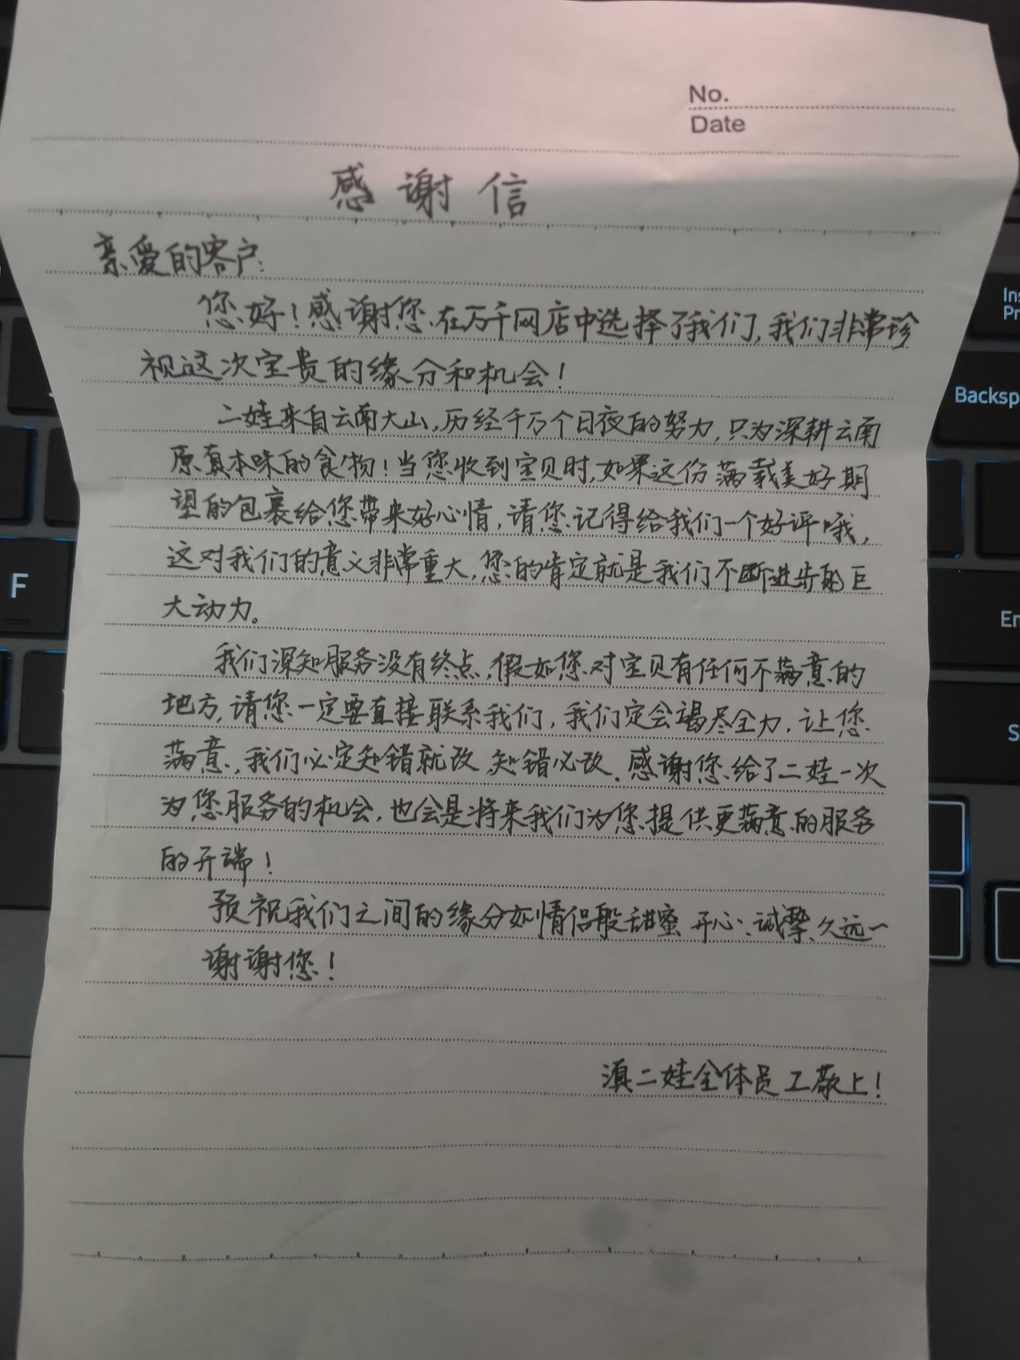 No.
Date
感谢信
亲爱的客户:
您好!感谢您在万千网店中选择了我们,我们非常珍
视这次宝贵的缘分和机会!
二娃来自云南大山,历经千万个日夜的努力,只为深耕云南
原真本味的食物!当您收到宝贝时,如果这份满载美好期
望的包裹给您带来好心情,请您记得给我们一个好评哦,
这对我们的意义非常重大,您的肯定就是我们不断进步的巨
大动力。
我们深知服务没有终点,假如您对宝贝有任何不满意的
地方,请您一定要直接联系我们,我们定会竭尽全力,让您
满意,我们必定知错就改,知错必改。感谢您给了二娃一次
为您服务的机会,也会是将来我们为您提供更满意的服务
的开端!
预祝我们之间的缘分如情侣般甜蜜、开心、诚挚、久远~
谢谢您!
滇二娃全体员工敬上!
Ins
Pr
Backsp
F
En
S